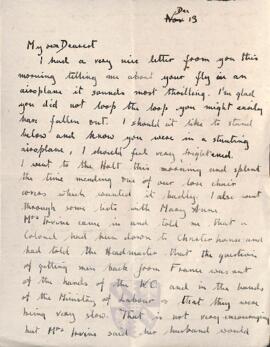 Dec
Nov 13
My own Dearest
I had a very nice letter from you this
morning telling me about your fly in an
aeroplane it sounds most thrilling. I'm glad
you did not loop the loop you might easily
have fallen out. I should it like to stand
below and know you were in a stunting
aeroplane, I should feel very frightened.
I went to the Halt this morning and splent
the time mending one of our lose chair
covers which wanted it badly. I also went
through some lists with Mary Anne.
Mrs Irvine came in and told me that a
Colonel had been down to Christer house and
had told the Headmaster that the question
of getting men back from France was out
of the hands of the W.O and in the hands
of the Ministry of Labour & that they were
being very slow. That is not very encouraging
but Mrs Irvine said her husband would